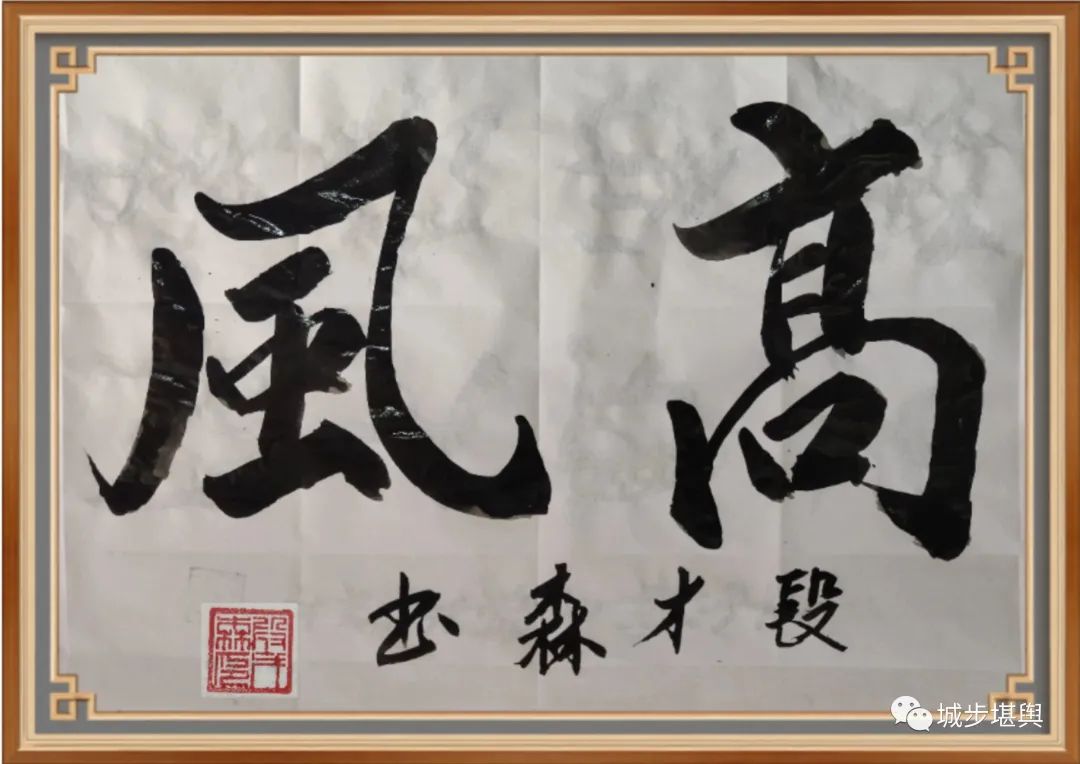 髙風
段才森书
段才森印
城步堪舆